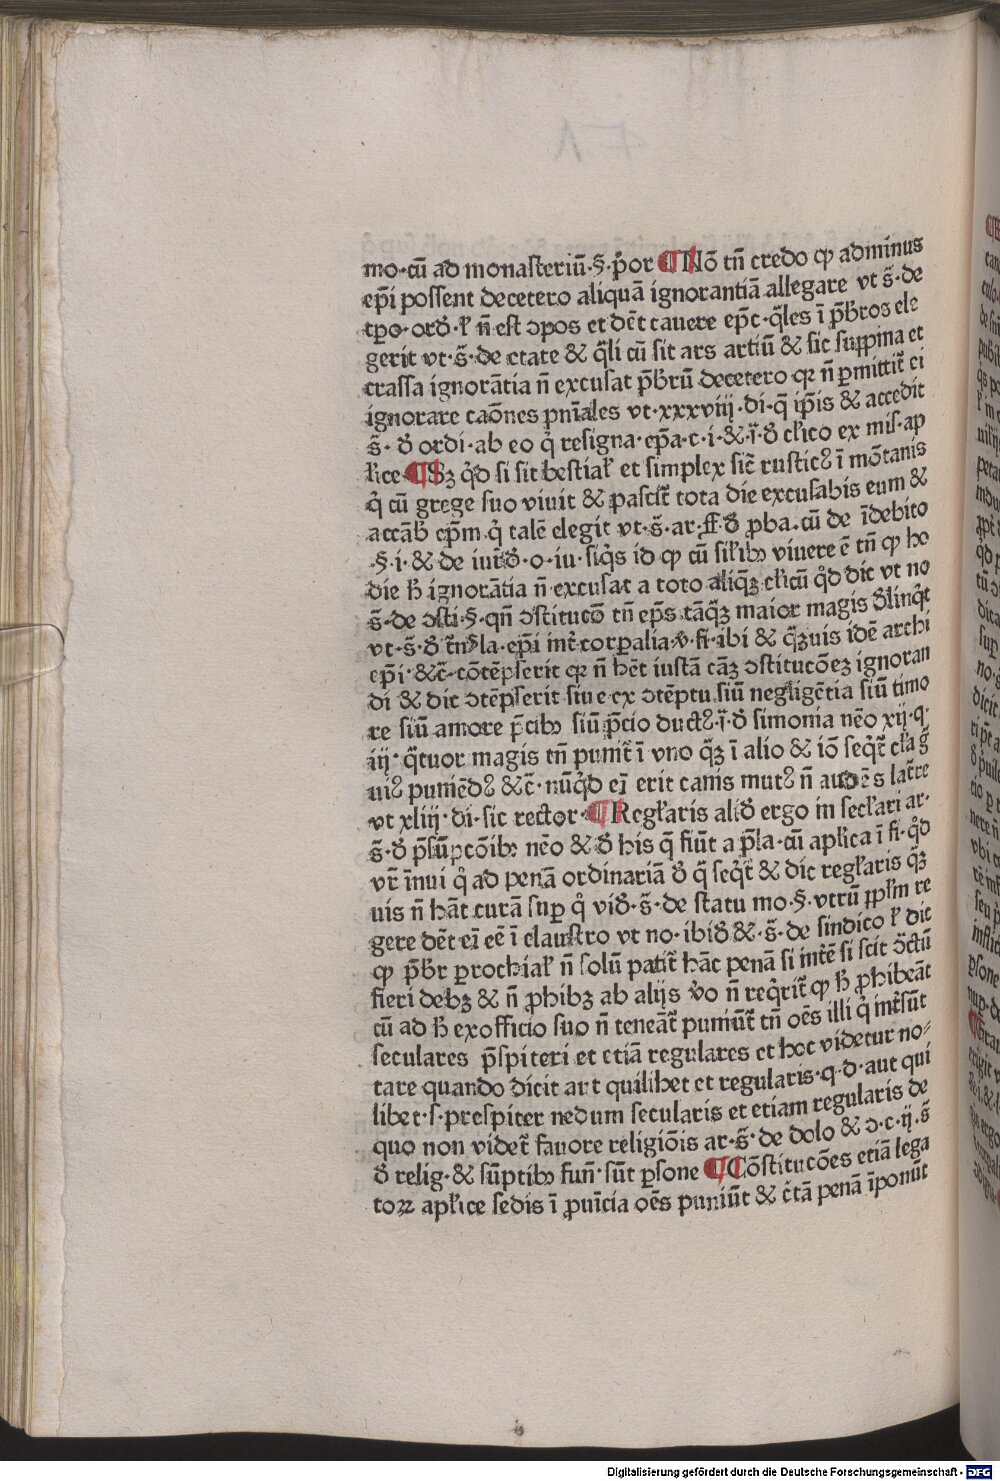 mo·cū ad monasteriū·§·p̄or ¶ Nō tn̄ credo ꝙ adminus
ep̄i possent decetero aliquā ignorantiā allegare vt s̄·de
tp̄o·ord̄·ł n̄ est ↄpos et dēt cauere ep̄c·q̄les ī p̄b̄ros ele
gerit vt·s̄·de etate & q̄li cū sit ars artiū & sic suppina et
crassa ignorātia n̄ excusat p̄b̄rū decetero qꝛ n̄ ꝑmittit̄ ei
ignorare caōnes pnīales vt·xxxviij·di·q̄ ip̄is & accedit
s̄·d̄ ordi·ab eo q̇ resigna·ep̄a·c·i·&·j̄·d̄ cƚico ex mis·ap
ƚice ¶ Sꝫ q̇d si sit bestiaƚ et simplex sic̄ rusticꝰ ī mōtanis
q̇ cū grege suo viuit & pascit̄ tota die excusabis eum &
accāb̄ ep̄m·q̇ talē elegit vt·s̄·ar·ff·d̄ ꝓba·cū de īdebito
·§·i·& de iur̄d̄·o·iu·siq̇s id ꝙ cū siƚibꝫ viuere ē tn̄ ꝙ ho
die h̄ ignorātia n̄ excusat a toto aliq̄ꝫ cƚicū q̇d dic vt no
s̄·de ↄsti·§·qn̄ ↄstitucō tn̄ ep̄s tāq̄ꝫ maior magis d̄linq̇t
ep̄i·&c̄·cōtēpserit qꝛ n̄ hēt iustā cāꝫ ↄstitucōeꝫ ignoran
di & dic ↄtēpserit siue ex ↄtēptu siū negligētia siū timo
re siū amore p̄cibꝫ siū p̄cio ductꝰ·j̄·d̄ simonia nēo xij·q·
iij·q̄tuor magis tn̄ punit̄ ī vno q̄ꝫ ī alio & iō seq̇t̄ cƚa g̃
uiꝰ puniēdꝰ &c̄·nūq̇d eī erit canis mutꝰ n̄ audēs lat̄re
vt xliij·di·sic rector· ¶ Regƚaris alid̄ ergo in secƚari ar·
s̄·d̄ p̄sūpcōibꝫ nēo & d̄ his q̄ fiūt a p̄la·cū apƚica ī fi·q̇d
vr̄ īnui q̇ ad penā ordinariā d̄ q̄ seq̇t̄ & dic regƚaris q̄ꝫ
uis n̄ hāt curā suꝑ q̇ vid̄·s̄·de statu mo·§·vtrū ꝓpƚm re
gere dēt eī eē ī claustro vt no·ibid̄ &·s̄·de sindico ł dic
ꝙ p̄b̄r ꝑrochiaƚ n̄ solū patit̄ hāc penā si int̄ē si scit ↄ̄ctū
fieri debꝫ & n̄ ꝓhibꝫ ab alijs v̄o n̄ req̇rit̄ ꝙ h̄ ꝓhibeāt
cū ad h̄ exofficio suo n̄ teneāt̄ puniūt̄ tn̄ oēs illi q̇ int̄sūt
seculares p̄spiteri et etiā regulares et hoc videtur no⸗
tare quando dicit aut quilibet et regularis·q·d·aut qui
libet·s·prespiter nedum secularis et etiam regularis de
quo non videt̄ fauore religiōis ar·s̄·de dolo & ↄ·c·ij·s̄
d̄ relig·& sūptibꝫ fun̄·sūt ꝑsone ¶ Cōstitucōes etiā lega
toꝝ apƚice sedis ī ꝓuīcia oēs puniūt & c̄tā penā īponūt
Digitalisierung gefördert durch die Deutsche Forschungsgemeinschaft - DFG